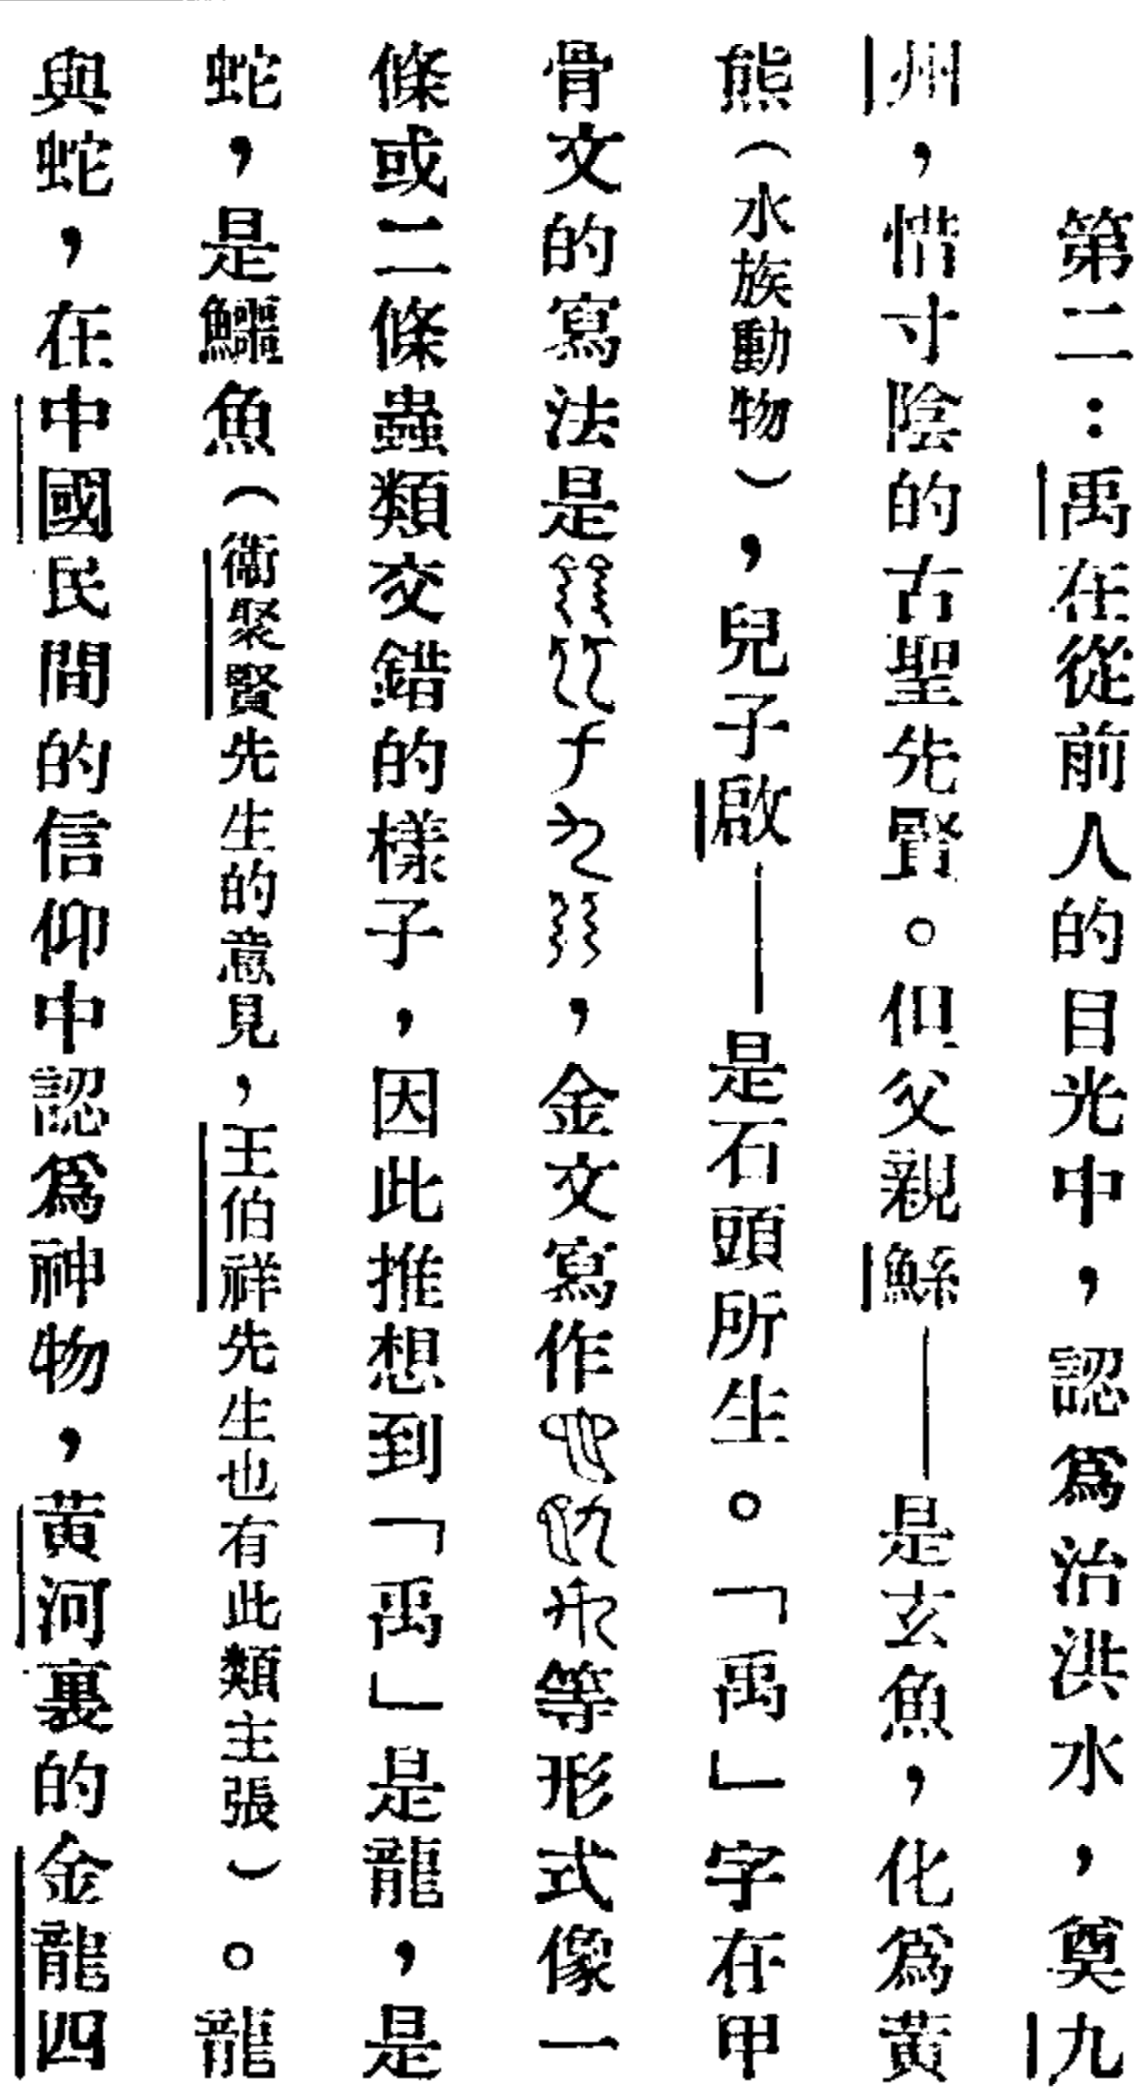 第二：禹在從前人的目光中，認爲治洪水，奠九
州，惜寸陰的古聖先賢。但父親鯀——是玄魚，化爲黃
熊（水族動物），兒子啟——是石頭所生。「禹」字在甲
骨文的寫法是，金文寫作等形式像一
條或二條蟲類交錯的樣子，因此推想到「禹」是龍，是
蛇，是鱷魚（衞聚賢先生的意見，王伯祥先生也有此類主張）。龍
與蛇，在中國民間的信仰中認爲神物，黃河裏的金龍四